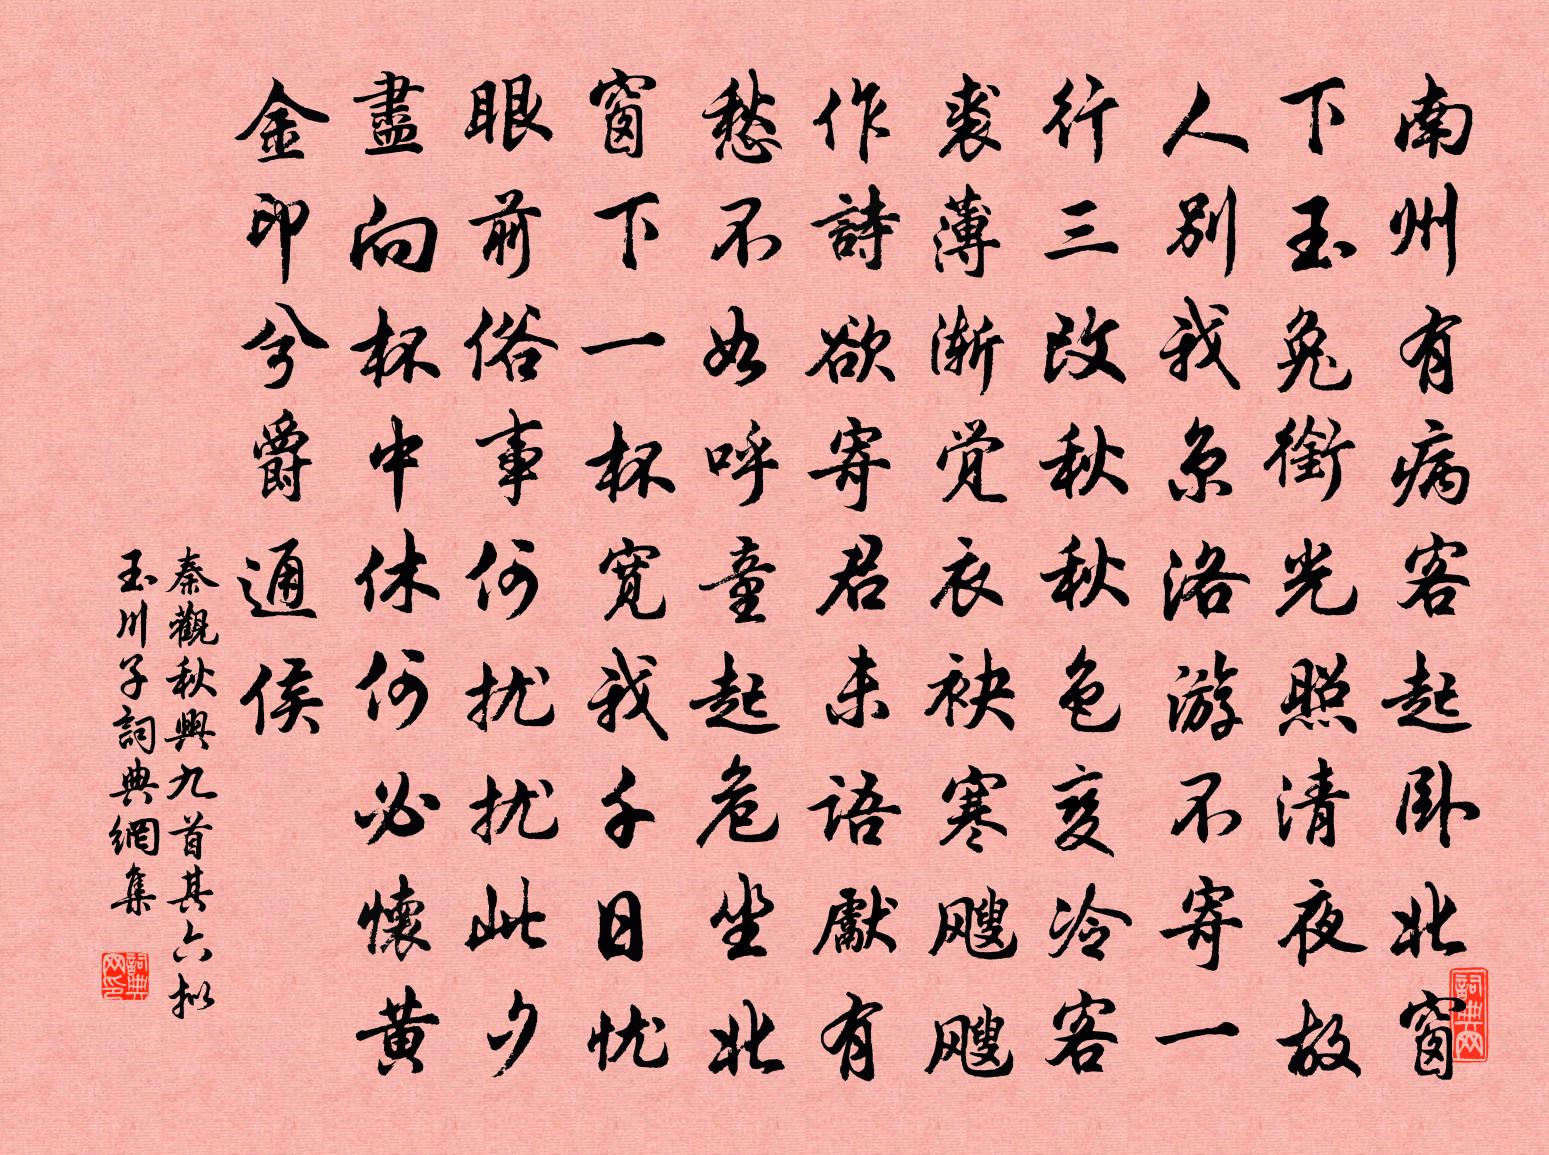 南州有病客起卧北窗
下玉兔銜光照清夜故
人别我京洛游不寄一
行三改秋秋色变冷客
裘薄漸觉衣袂寒飕飕
作詩欲寄君未語獻有
愁不如呼童起危坐北
窗下一杯寬我千日忧
眼前俗事何扰扰此夕
盡向杯中休何必懷黄
金印兮爵通侯
秦觀秋興九首其六拟
玉川子詞典網集
詞典网
詞典网印